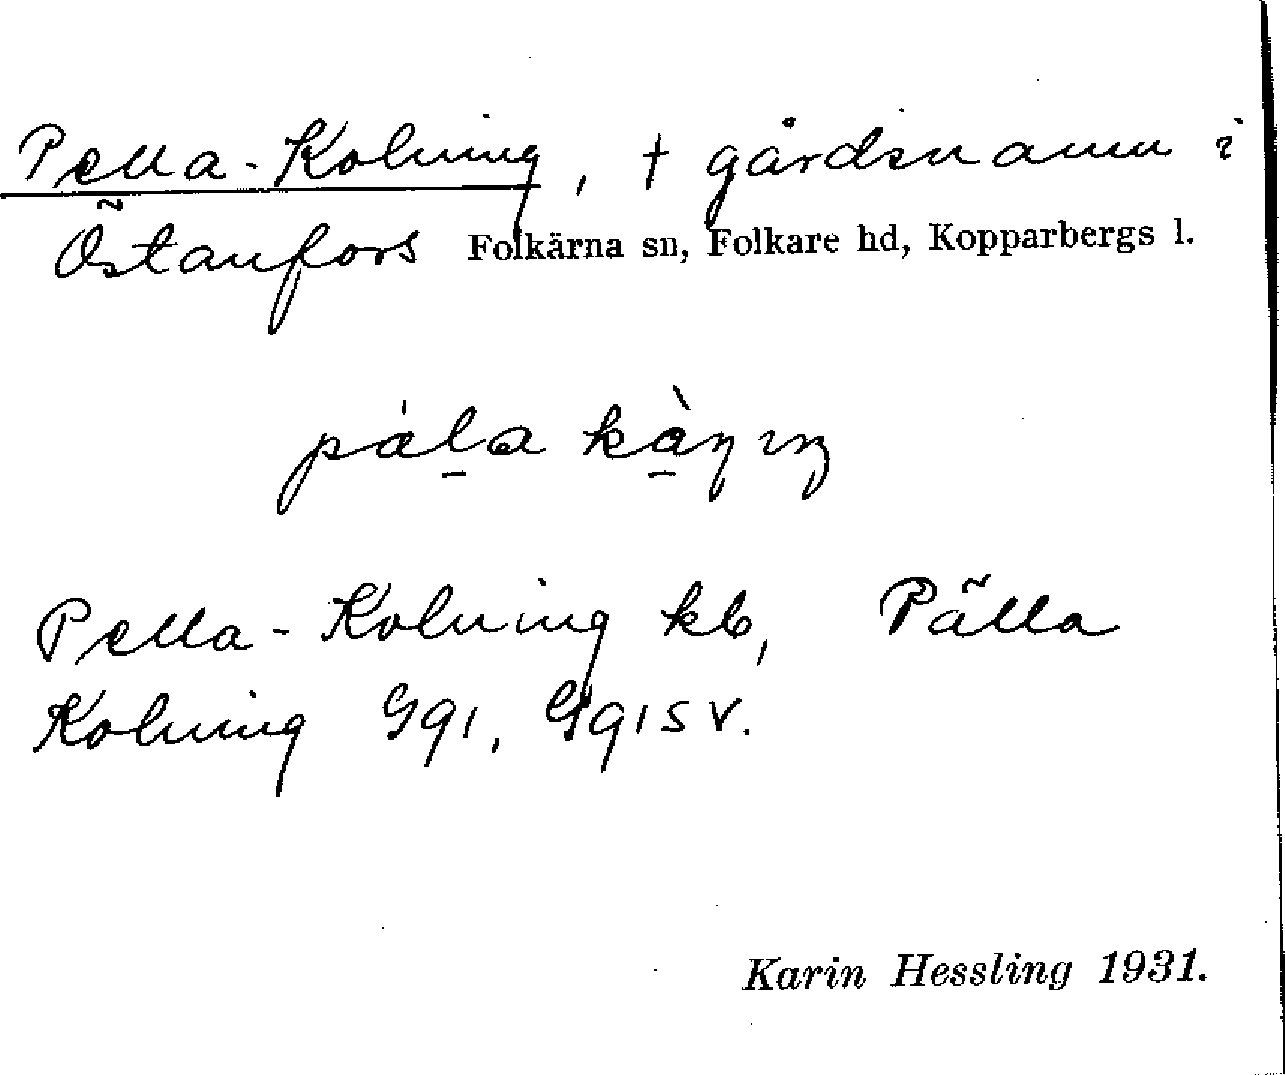 Pella-Kolning, † gårdsnamn i
Östanfors Folkärna sn, Folkare hd, Kopparbergs l.
Pella-Kolning kb, Pälla
Kolning Gq1, Gq15 v.
Karin Hessling 1931.